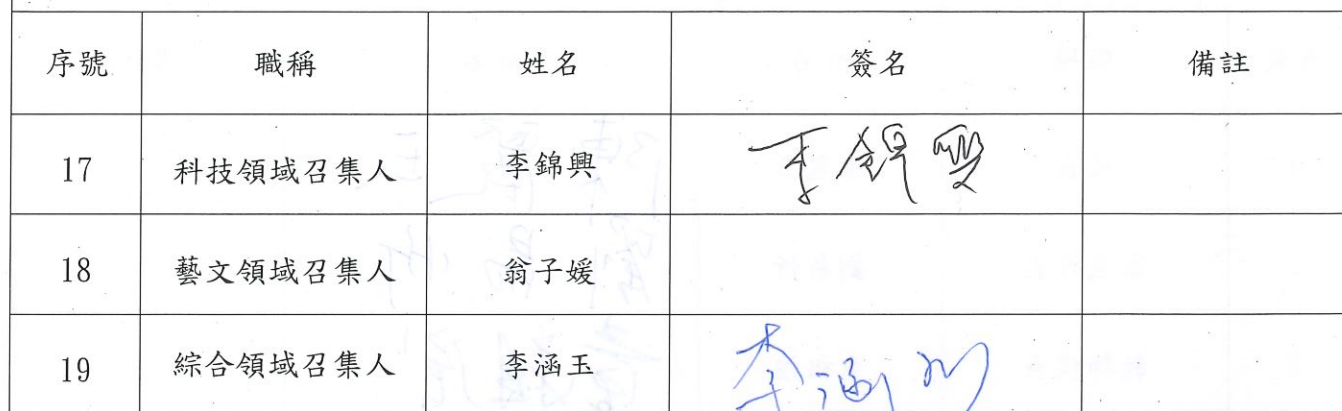 序號 職稱 姓名 簽名 備註
17 科技領域召集人 李錦興 李錦興
18 藝文領域召集人 翁子媛
19 綜合領域召集人 李涵玉 李涵玉